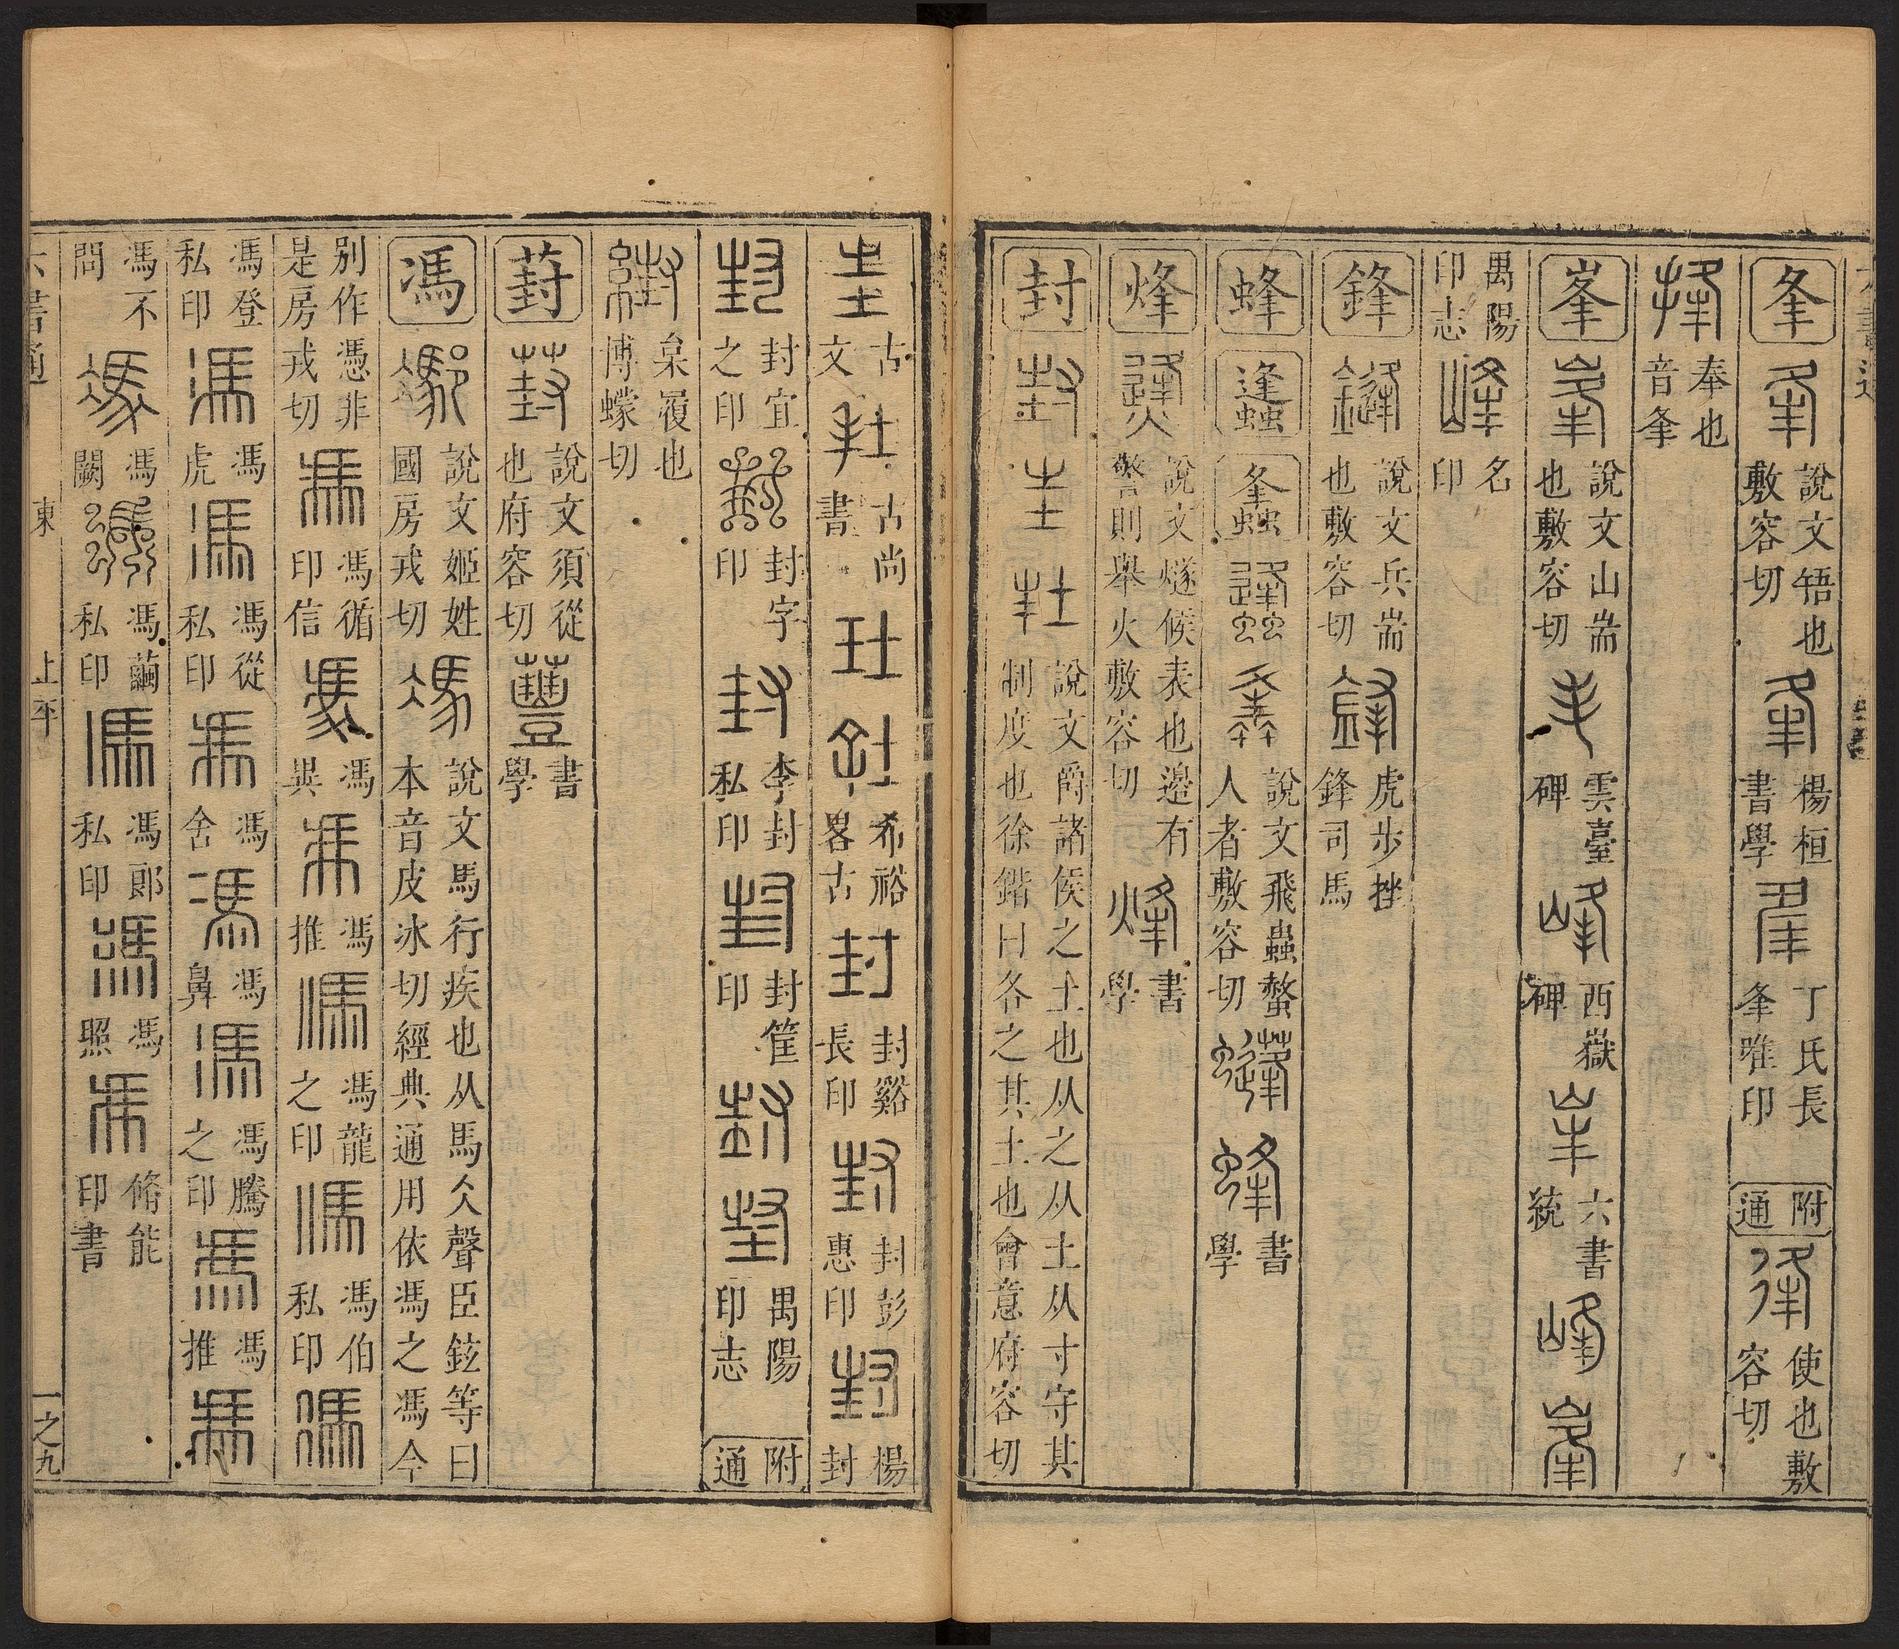 夆 説文啎也敷容切 楊桓書學 丁氏長夆唯印 附通 使也敷容切
奉也音夆
峯 説文山耑也敷容切 雲臺碑 西嶽碑 六書統
禺陽印志 名印
鋒 説文兵耑也敷容切 虎步挫鋒司馬
蜂 説文飛蟲螫人者敷容切 書學
烽 説文燧候表也邉有警則舉火敷容切 書學
封 説文爵諸侯之土也从之从土从寸守其制度也徐鍇曰各之其土也會意府容切
古文 古尚書 希裕畧古 封谿長印 封彭惠印 楊封
封宜之印 封字印 李封私印 封筐印 禺陽印志 附通
枲履也博蠓切
葑 説文須從也府容切 書學
馮 説文姬姓國房戎切 説文馬行疾也从馬仌聲臣鉉等曰本音皮冰切經典通用依馮之馮今
别作憑非是房戎切 馮循印信 馮異 馮推 馮龍之印 馮伯私印
馮登私印 馮虎 馮從私印 馮舍 馮鼻 馮騰之印 馮推
馮不問 馮闕 馮繭私印 馮郎私印 馮照 脩能印書
六書通 東 上平 一之九